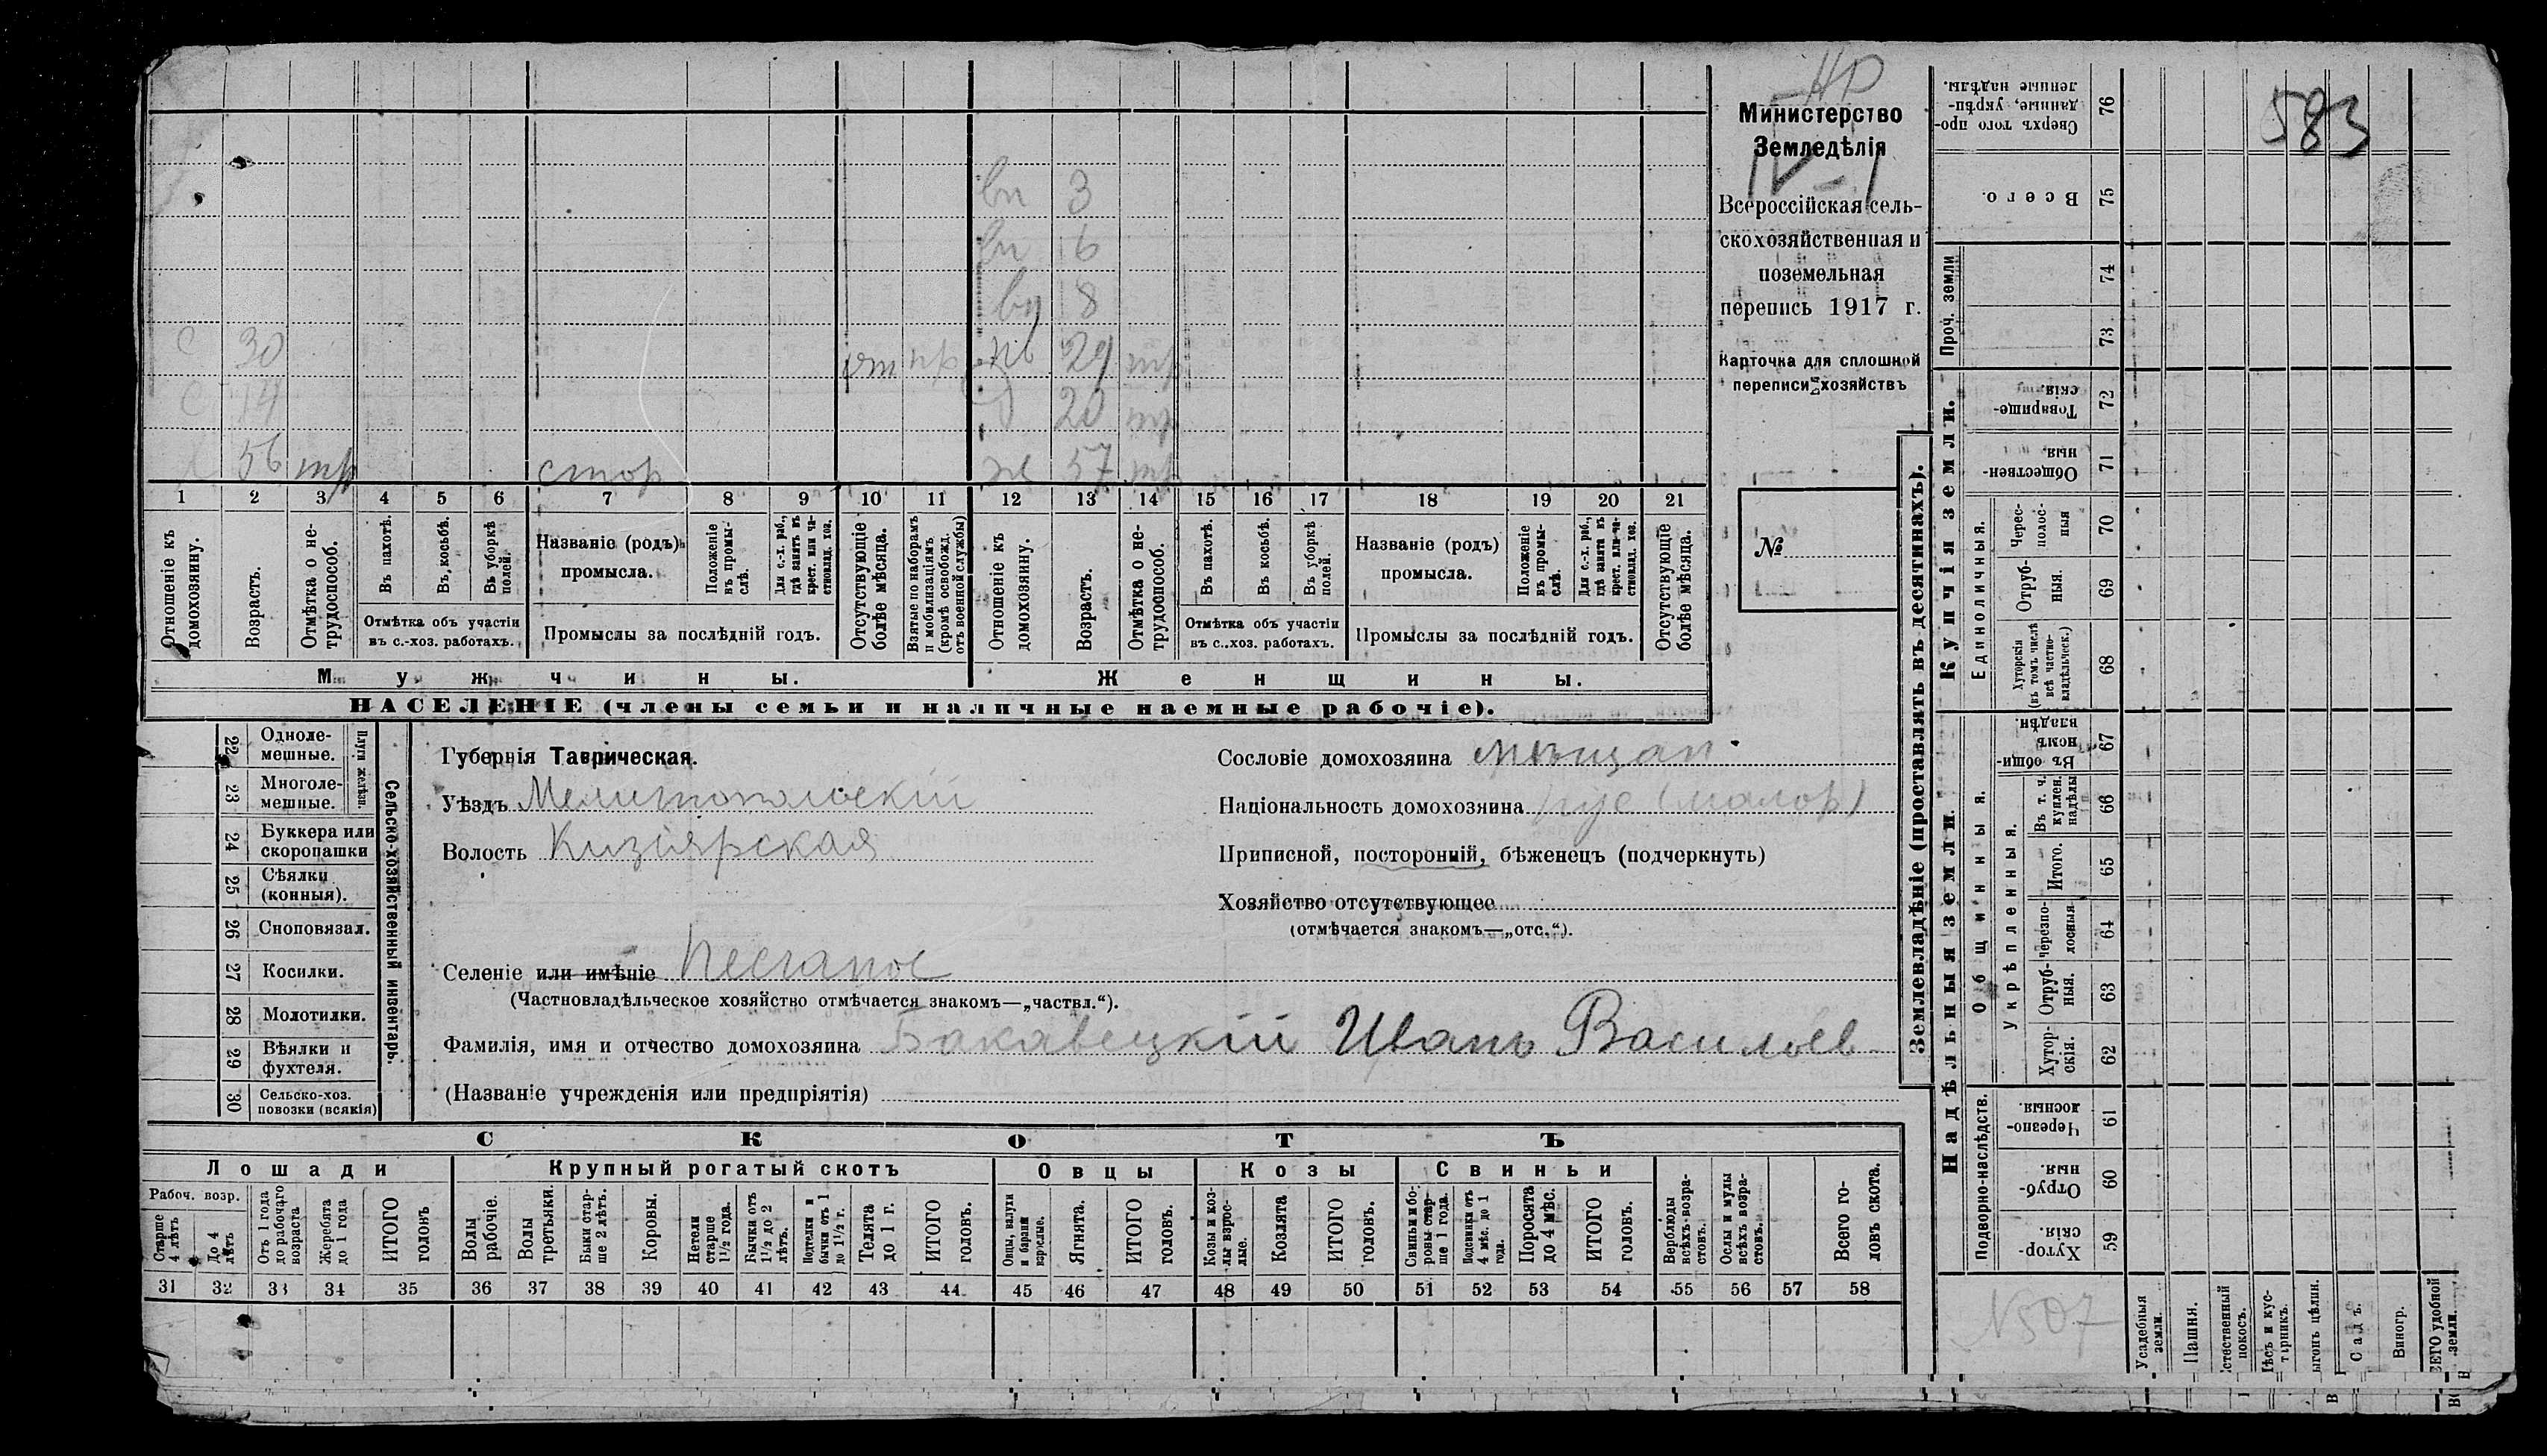 583
Министерство
Земледѣлія
IV-1
Всероссійская сель-
скохозяйственная и
поземельная
перепись 1917 г.
Карточка для сплошной
переписи хозяйствъ
№
вн 3
вн 6
вн 8
с 30 от пр нв 29 тр
с 14 д 20 тр
56 тр стор ж 57 тр
1 2 3 4 5 6 7 8 9 10 11 12 13 14 15 16 17 18 19 20 21
Отношеніе къ домохозяину.
Возрастъ.
Отмѣтка о не-трудоспособ.
Въ пахотѣ.
Въ косьбѣ.
Въ уборкѣ полей.
Отмѣтка объ участіи
въ с.-хоз. работахъ.
Названіе (родъ)
промысла.
Положеніе въ промы-слѣ.
Для с.-х. раб., гдѣ занятъ въ крест. или ча-стновлад. хоз.
Промыслы за послѣдній годъ.
Отсутствующіе болѣе мѣсяца.
Взятые по наборамъ и мобилизаціямъ (кромѣ освобожд. отъ военной службы)
Отношеніе къ домохозяину.
Возрастъ.
Отмѣтка о не-трудоспособ.
Въ пахотѣ.
Въ косьбѣ.
Въ уборкѣ полей.
Отмѣтка объ участіи
въ с.-хоз. работахъ.
Названіе (родъ)
промысла.
Положеніе въ промы-слѣ.
Для с.-х. раб., гдѣ занята въ крест. или ча-стновлад. хоз.
Промыслы за послѣдній годъ.
Отсутствующіе болѣе мѣсяца.
Мужчины.
Женщины.
НАСЕЛЕНІЕ (члены семьи и наличные наемные рабочіе).
Сельско-хозяйственный инвентарь.
Плуги желѣзн.
22 Однолемешные.
23 Многолемешные.
24 Буккера или скоропашки
25 Сѣялки (конныя).
26 Сноповязал.
27 Косилки.
28 Молотилки.
29 Вѣялки и фухтеля.
30 Сельско-хоз. повозки (всякія)
Губернія Таврическая.
Уѣздъ Мелитопольскій
Волость Кизіярская
Селеніе или имѣніе
(Частновладѣльческое хозяйство отмѣчается знакомъ—„частвл.“).
Фамилія, имя и отчество домохозяина Бакавецкій Иванъ Васильев
(Названіе учрежденія или предпріятія)
Сословіе домохозяина мѣщан.
Національность домохозяина рус (малор)
Приписной, посторонній, бѣженецъ (подчеркнуть)
Хозяйство отсутствующее
(отмѣчается знакомъ—„отс.“).
СКОТЪ
Лошади
Рабоч. возр.
Старше 4 лѣтъ
До 4 лѣтъ
Отъ 1 года до рабочаго возраста
Жеребята до 1 года
ИТОГО головъ
Крупный рогатый скотъ
Волы рабочіе.
Волы третьяки.
Быки стар-ше 2 лѣтъ.
Коровы.
Нетели старше 1½ года.
Бычки отъ 1½ до 2 лѣтъ.
Подтелки и бычки отъ 1 до 1½ г.
Телята до 1 г.
ИТОГО головъ.
Овцы
Овцы, валухи и бараны взрослые.
Ягнята.
ИТОГО головъ.
Козы
Козы и коз-лы взрос-лые.
Козлята
ИТОГО головъ.
Свиньи
Свиньи и бо-ровы стар-ше 1 года.
Подсвинки отъ 4 мѣс. до 1 года.
Поросята до 4 мѣс.
ИТОГО головъ.
Верблюды всѣхъ возра-стовъ.
Ослы и мулы всѣхъ возра-стовъ.
Всего го-ловъ скота.
31 32 33 34 35 36 37 38 39 40 41 42 43 44 45 46 47 48 49 50 51 52 53 54 55 56 57 58
Землевладѣніе (проставлять въ десятинахъ).
Купчія земли.
Проч. земли
Единоличныя.
Сверхъ того про-данные, укрѣп-ленные надѣлы. 76
Всего. 75
74
73
Товарище-скія. 72
Обществен-ныя. 71
Черес-полос-ныя 70
Отруб-ныя. 69
Хуторскія (въ томъ числѣ всѣ частно-владѣльческ.) 68
Надѣльныя земли.
Общинныя.
Укрѣпленныя.
Въ общи-номъ владѣн. 67
Въ т. ч. куплен. надѣлы 66
Итого. 65
Черезпо-лосныя 64
Отруб-ныя. 63
Хутор-скія. 62
Подворно-наслѣдств.
Черезпо-лосныя. 61
Отруб-ныя. 60
Хутор-скія. 59
N507
Усадебныя земли.
Пашня.
стественный покосъ.
ѣсъ и кус-тарникъ.
ыгонъ цѣлин.
Садъ.
Виногр.
ЕГО удобной земли.